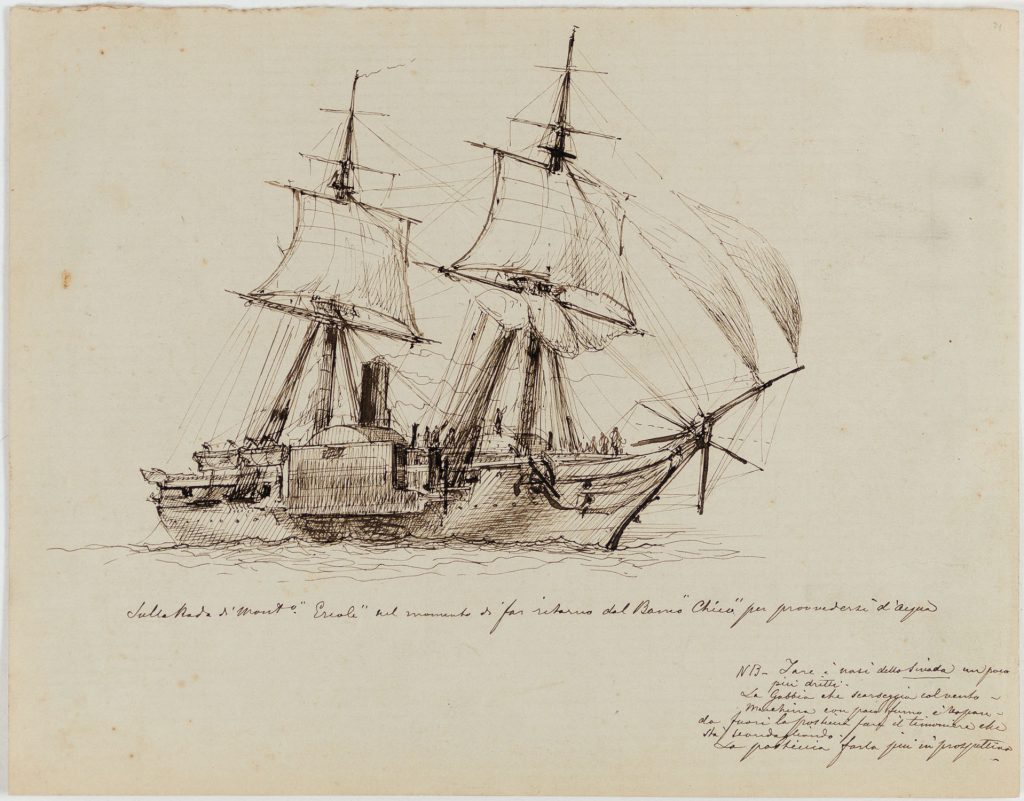 Sulla Rada di Mont.o "Ercole" nel momento di far ritorno dal Banco "Chico" per provvedersi d'acqua
NB- Fare i nasi dello sivada un poco
più dritti.
La Gabbia che scarseggia col vento -
Macchina con poco fumo e vapore -
da fuori la posticcia fare il timoniere che
sta scandagliando.
La posticcia farla più in prospettiva